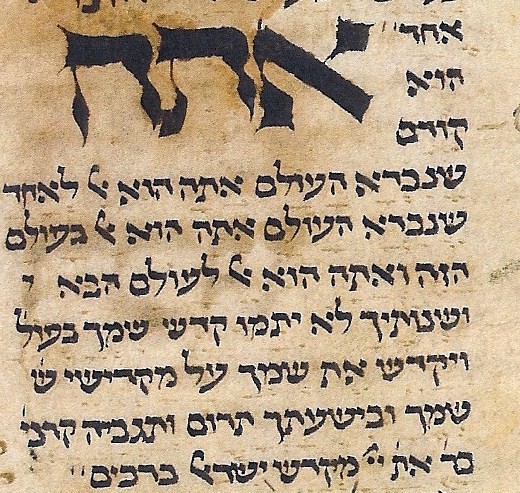 אחד
אתה
הוא
קודם
שנברא העולם אתה הוא אל לאחר
שנברא העולם אתה הוא אל בעולם
הזה ואתה הוא אל לעולם הבא ו
ושנותיך לא יתמו קדש שמך בעול
ויקדש את שמך על מקדישי ש
שמך ובישעתך תרום ותגביה קרני
בר את יי מקדש ישראל ברבים